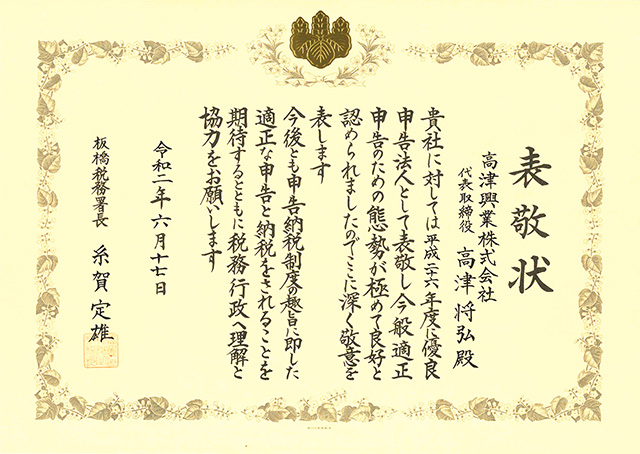 表敬状
高津興業株式会社
代表取締役 高津将弘殿
貴社に対しては平成二六年度に優良
申告法人として表敬し今般適正
申告のための態勢が極めて良好と
認められましたのでここに深く敬意を
表します
今後とも申告納税制度の趣旨に即した
適正な申告と納税をされることを
期待するとともに税務行政へ理解と
協力をお願いします
令和二年六月十七日
板橋税務署長 糸賀定雄